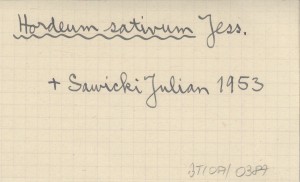 Hordeum sativum Jess.
+ Sawicki Julian 1953